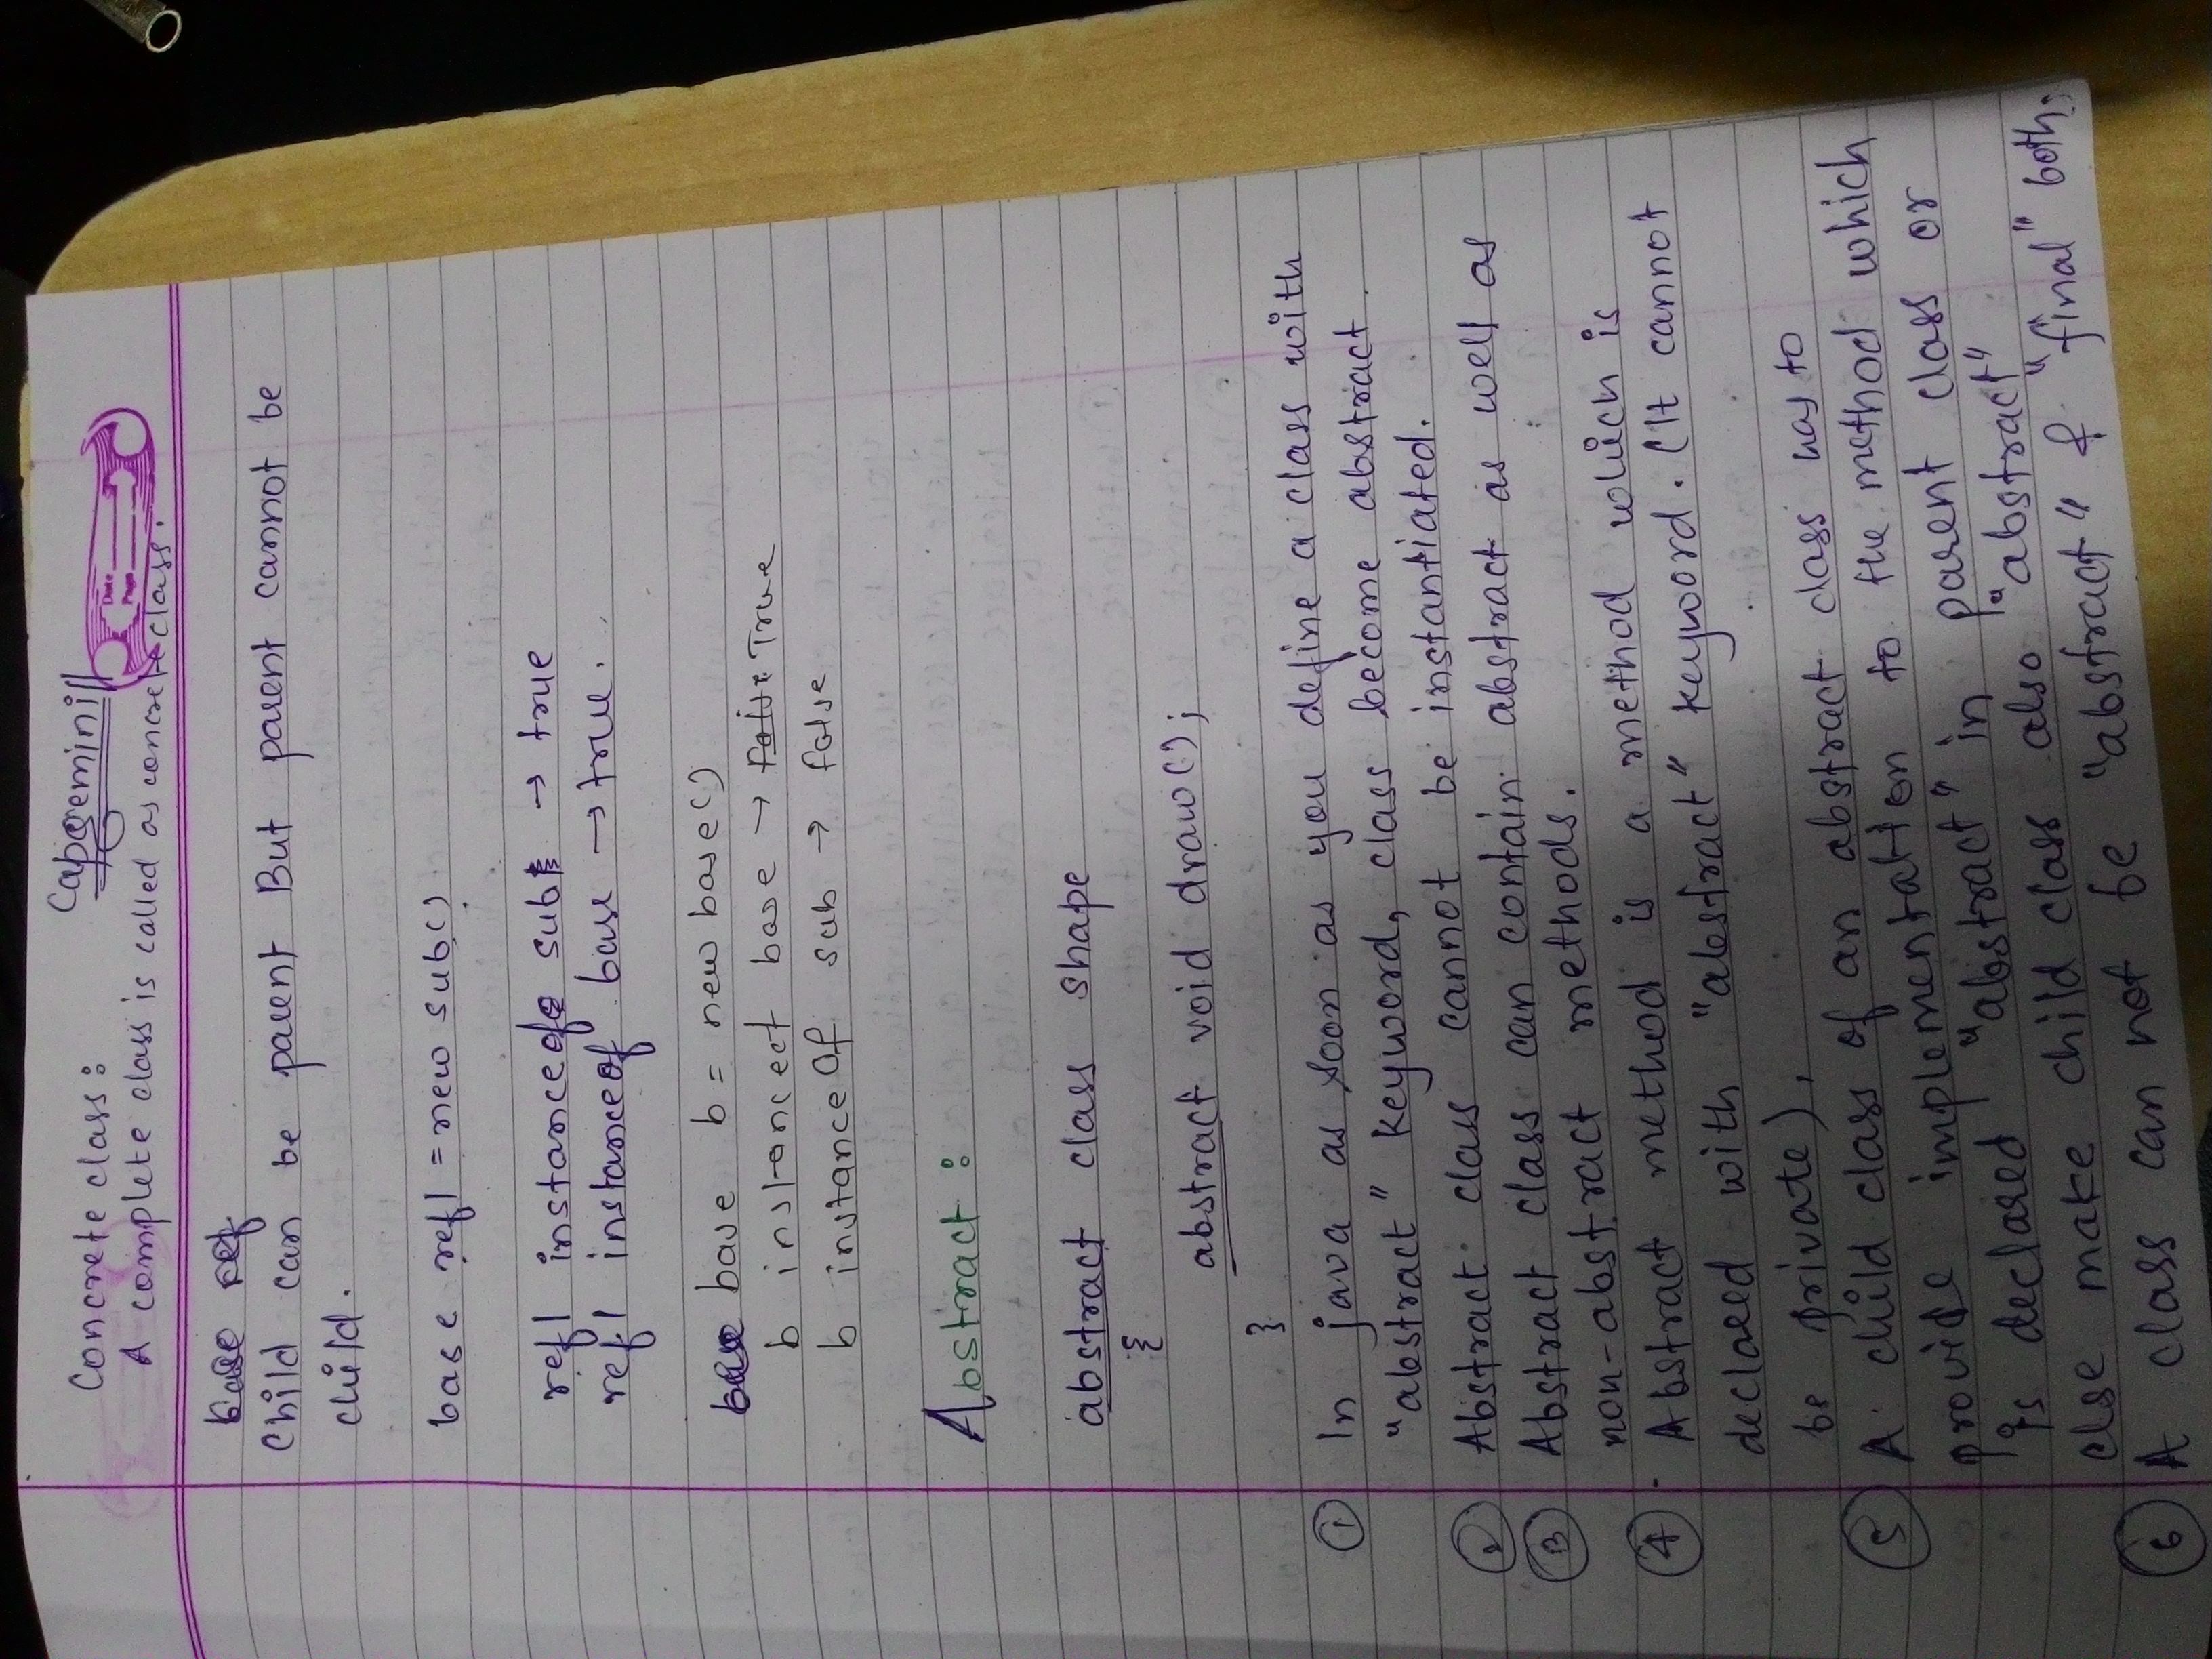 Capgemini
Concrete class:
Date
Page
A complete class is called as concrete class.
base ref
Child can be parent But parent cannot be
child.
base ref1 = new sub()
ref1 instanceof sub → true
ref1 instanceof base → true.
base b = new base()
b instancect base → False True
b instanceOf sub → false
Abstract :
abstract class shape
{
abstract void draw();
}
① In java as soon as you define a class with
"abstract" keyword, class become abstract.
② Abstract class cannot be instantiated.
③ Abstract class can contain abstract as well as
non-abstract methods.
④ Abstract method is a method which is
declared with "abstract" keyword. (It cannot
be private),
⑤ A child class of an abstract class has to
provide implementation to the method which
is declared "abstract" in parent class or
else make child class also "abstract"
⑥ A class can not be "abstract" & "final" both.